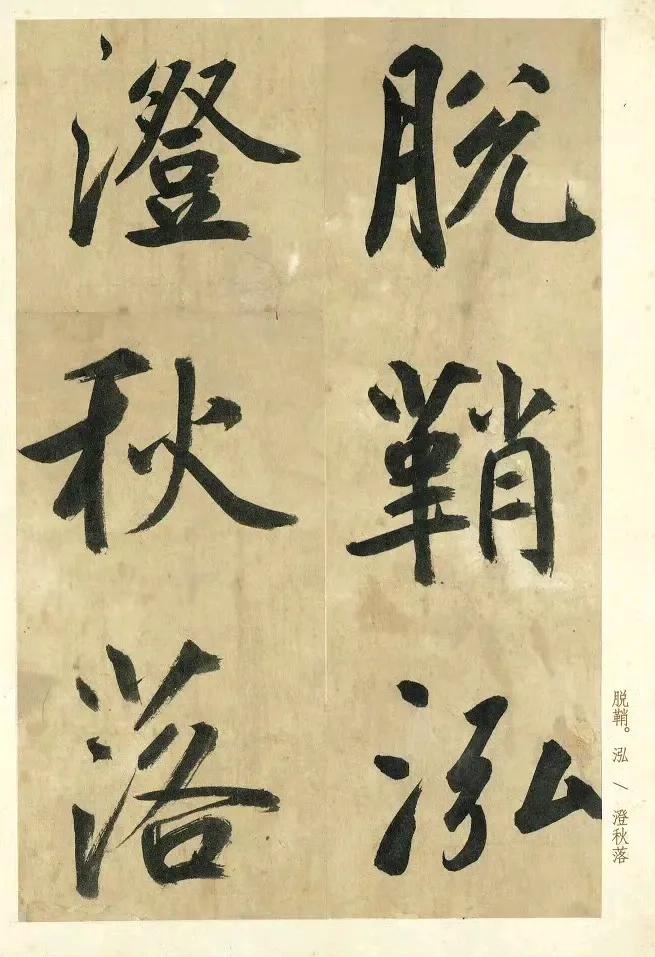 脱鞘泓
澄秋落
脱鞘。泓 / 澄秋落